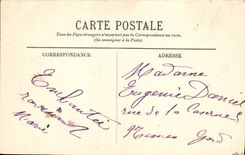 CARTE POSTALE
Tous les Pays étrangers n'acceptent pas la Correspondance au recto.
(Se renseigner à la Poste).
CORRESPONDANCE
ADRESSE
Madame
Eugenie Daniel
rue de la Caserne
Nimes Gard
Marie